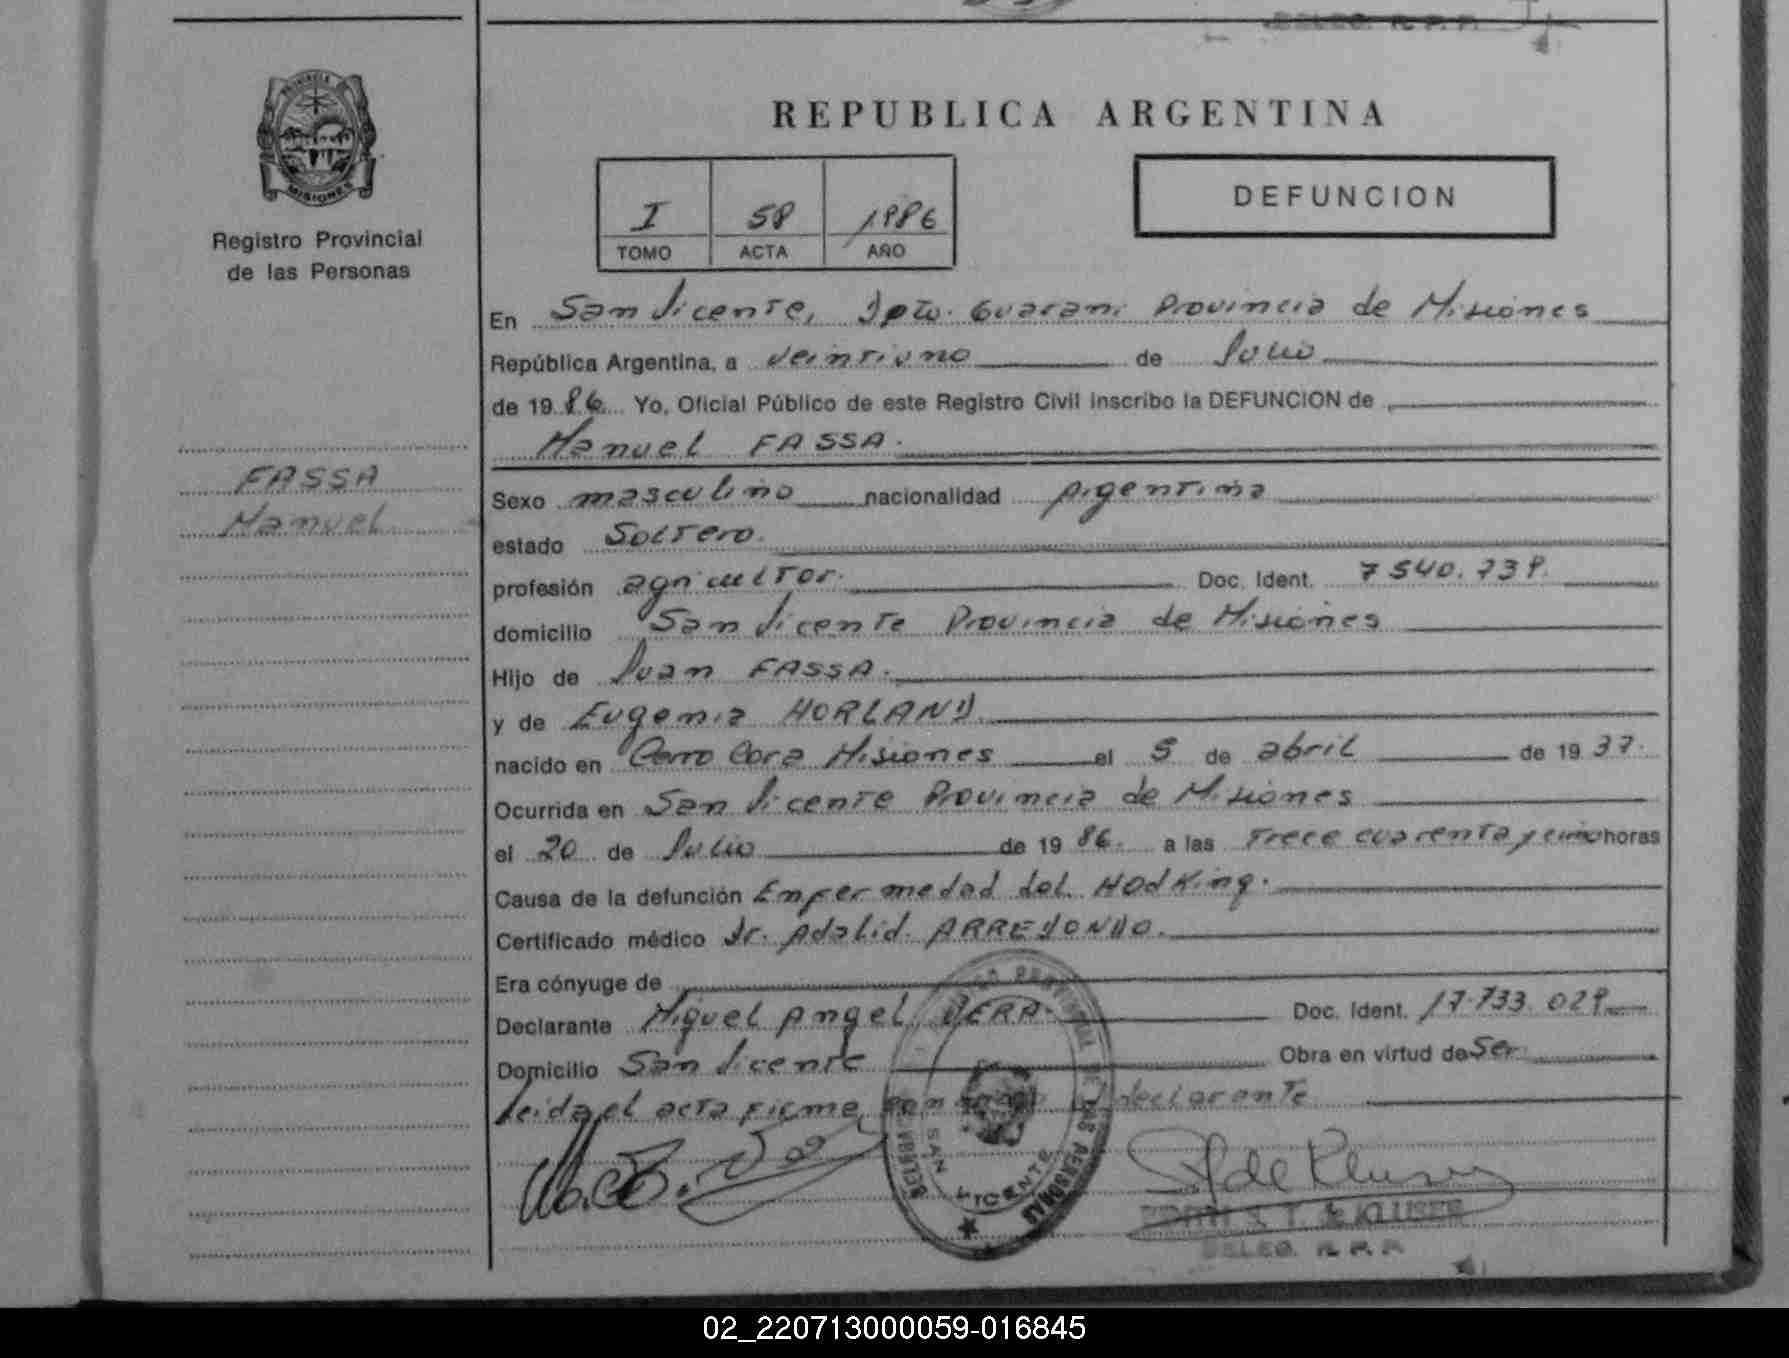 DELEG. R. P. P.
PROVINCIA
MISIONES
Registro Provincial
de las Personas
REPUBLICA ARGENTINA
I 58 1986
TOMO ACTA AÑO
DEFUNCION
En San Vicente, Dpto. Guarani Provincia de Misiones
República Argentina, a veintiuno de Julio
de 1986 Yo, Oficial Público de este Registro Civil inscribo la DEFUNCION de
Manuel FASSA.
FASSA
Manuel
Sexo masculino nacionalidad Argentina
estado Soltero.
profesión agricultor. Doc. Ident.
domicilio San Vicente Provincia de Misiones
Hijo de Juan FASSA.
y de Eugenia HORLAND
nacido en Cerro Cora Misiones el 5 de abril de 1937.
Ocurrida en San Vicente Provincia de Misiones
el 20 de Julio de 1986. a las trece cuarenta y cinco horas
Causa de la defunción Enfermedad del HodKing.
Certificado médico Dr. Adalid. ARREDONDO.
Era cónyuge de
Declarante Miguel Angel Doc. Ident.
Domicilio San Vicente Obra en virtud de Ser
Leida el acta firma, con migo el declarante
REGISTRO PROVINCIAL DE LAS PERSONAS
SAN VICENTE
EDITH S. T. de KLUSER
DELEG. R. P. P.
02_220713000059-016845